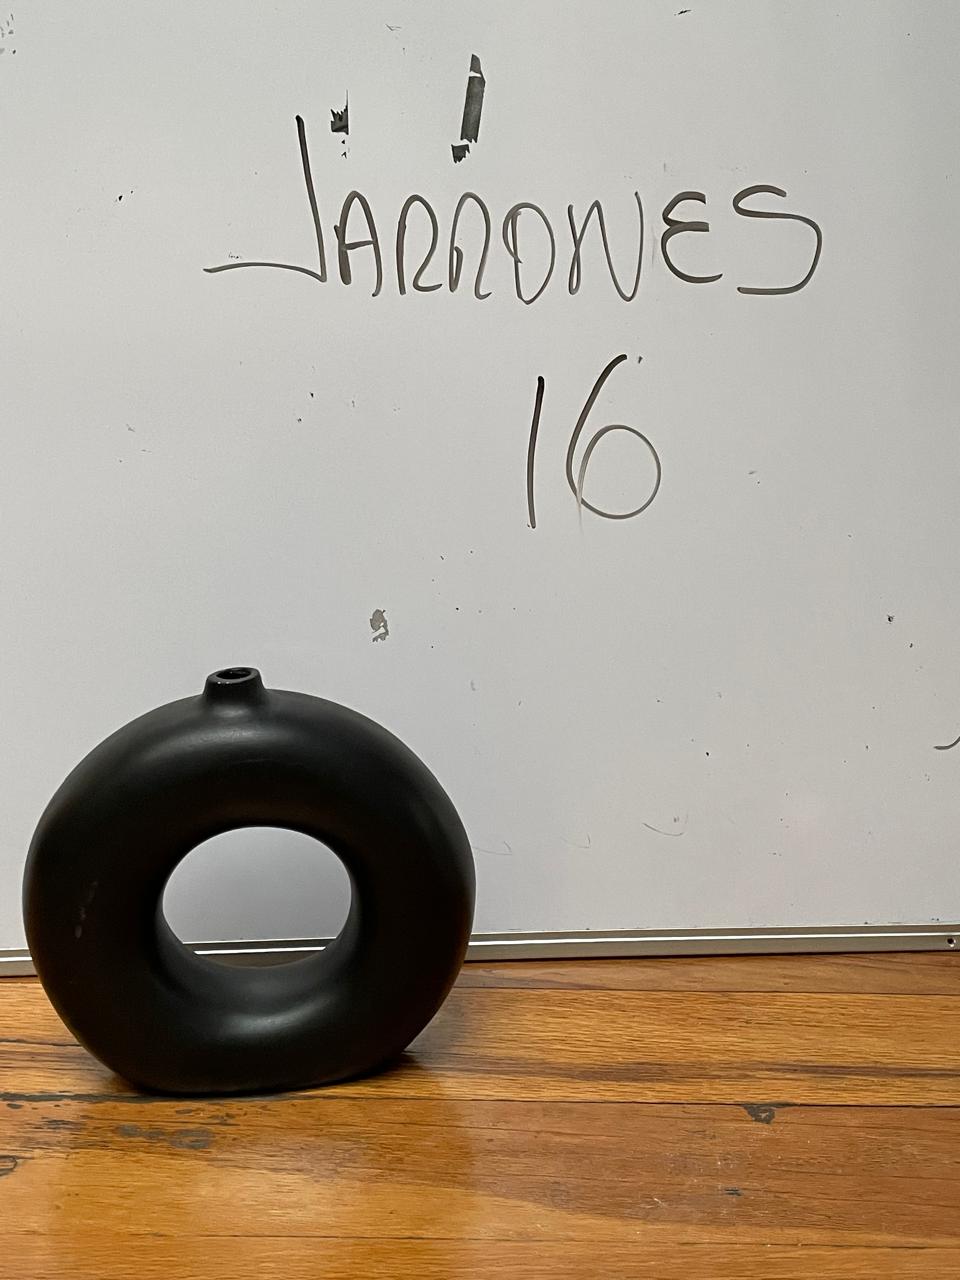 JARRONES
16